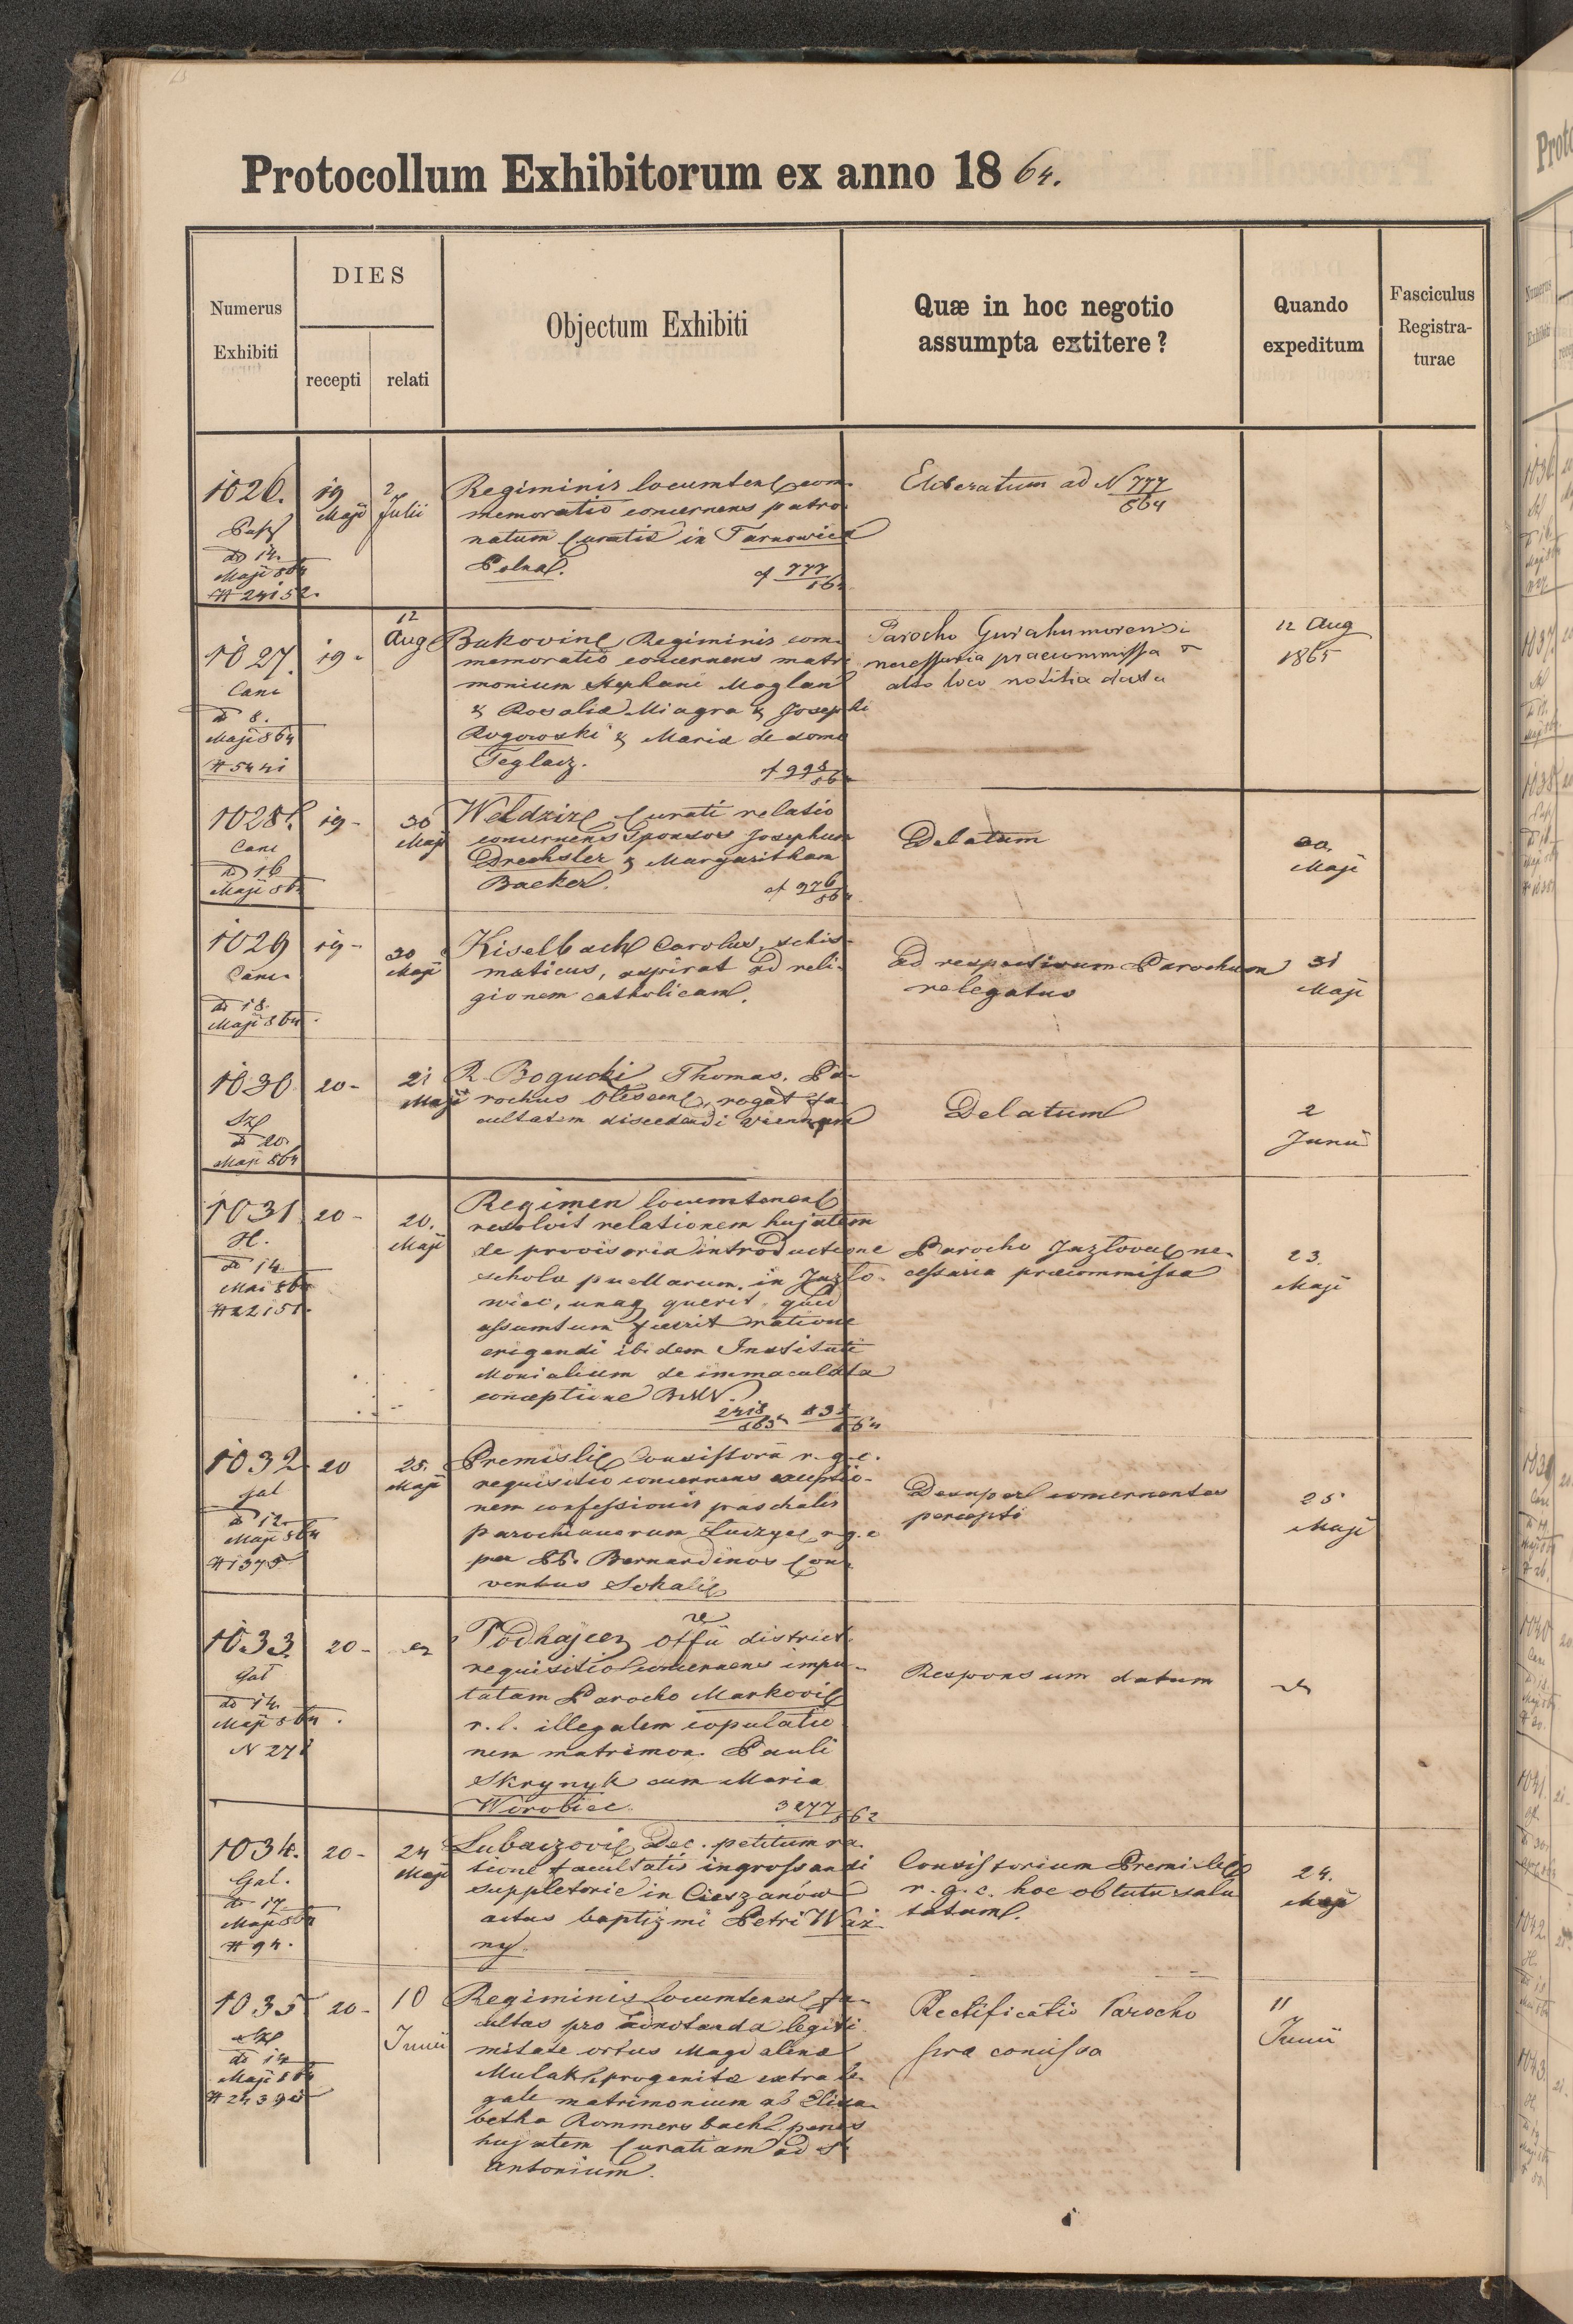 Protocollum Exhibitorum ex anno 1864.
Numerus Exhibiti
DIES
recepti
relati
Objectum Exhibiti
Quæ in hoc negotio
assumpta extitere?
Quando
expeditum
Fasciculus
Registra-
turae
1026.
19 Maji
2 Julii
dd 14.
Maji 864
Regiminis locumten com-
memoratio concernens patro-
natum Curatiæ in Tarnowica
Polna.
cf 777
864
Elaboratum ad N 777
864
1027.
19-
12 Aug
Cane
d 8.
Maji 864
# 5441
Bukovin Regiminis com-
memoratio concernens matri
monium Stephani Maglan
& Rosaliæ Miagra & Josephi
Rogowski & Maria de domo
Teglacz.
Parocho Gurahumorensi
necessaria præcommissa
alto loco notitia data
12 Aug
1865
1028.
19-
30 Maji
Cane
dd 16
Maji 864
Weldziz Curati relatio
concernens Sponsos Josephum
Drechsler & Margaritham
Backer.
cf 976
864
Delatum
30.
Maji
1029
19-
30 Maji
Cane
dd 18
Maji 864.
Kiselbach Carolus, schis-
maticus, aspirat ad reli-
gionem catholicam.
ad respectivum Parochum
relegatus
31
Maji
1030
20-
21 Maji
d 20.
Maji 864
R. Bogucki Thomas. Pa-
rochus Olesc, rogat fa-
cultatem discedendi Viennam
Delatum
2
Junii
1031
20-
20. Maji
H.
dd 14.
Mai 864
# 22151.
Regimen locumtenens
resolvit relationem hujatem
de provisoria introductione
schola puellarum in Jazlo-
wiec, unaq querit, quid
assumtum fuerit ratione
erigendi ibidem Instituti
Monialium de immaculata
conceptione BMV.
2418
863
Parocho Jazlov ne-
cessaria præcommissa
23.
Maji
1032
20
25. Maji
Gal
d 12.
Maji 864
# 1375
Premisli Consistorii r.g.c.
requisitio concernens exceptio-
nem confessionis paschalis
parochianorum r.g.c
per PP. Bernardinos Con-
ventus Sokali
Desuper concernentes
percepti
25
Maji
1033.
20-
Gal
dd 14.
Maji 864.
N 271
Podhajcen offii district.
requisitio concernens impu-
tatam Parocho Markovi
r.l. illegalem copulatio
nem matrimon. Pauli
Skrynyk cum Maria
Worobiec.
3277
862
Responsum datum
1034.
20-
24 Maji
Gal.
dd 17.
Maji 864
# 94.
Lubaczovi Dec. petitum ra-
tione facultatis ingrossandi
suppletorie in Cieszanów
actus baptizmi Petri Waż-
ny.
Consistorium Premisli
r.g.c. hoc obtutu salu
tatum.
24.
Maji
1035
20-
10
Junii
dd 14
Maji 864
Regiminis locumten fa-
cultas pro adnotanda legiti
mitate ortus Magdalenæ
Mulak, progenitæ extra le-
gale matrimonium ab Elisa-
betha Rommersbach penes
hujatem Curatiam ad St
Antonium.
Rectificatio Parocho
præ comissa
11
Junii